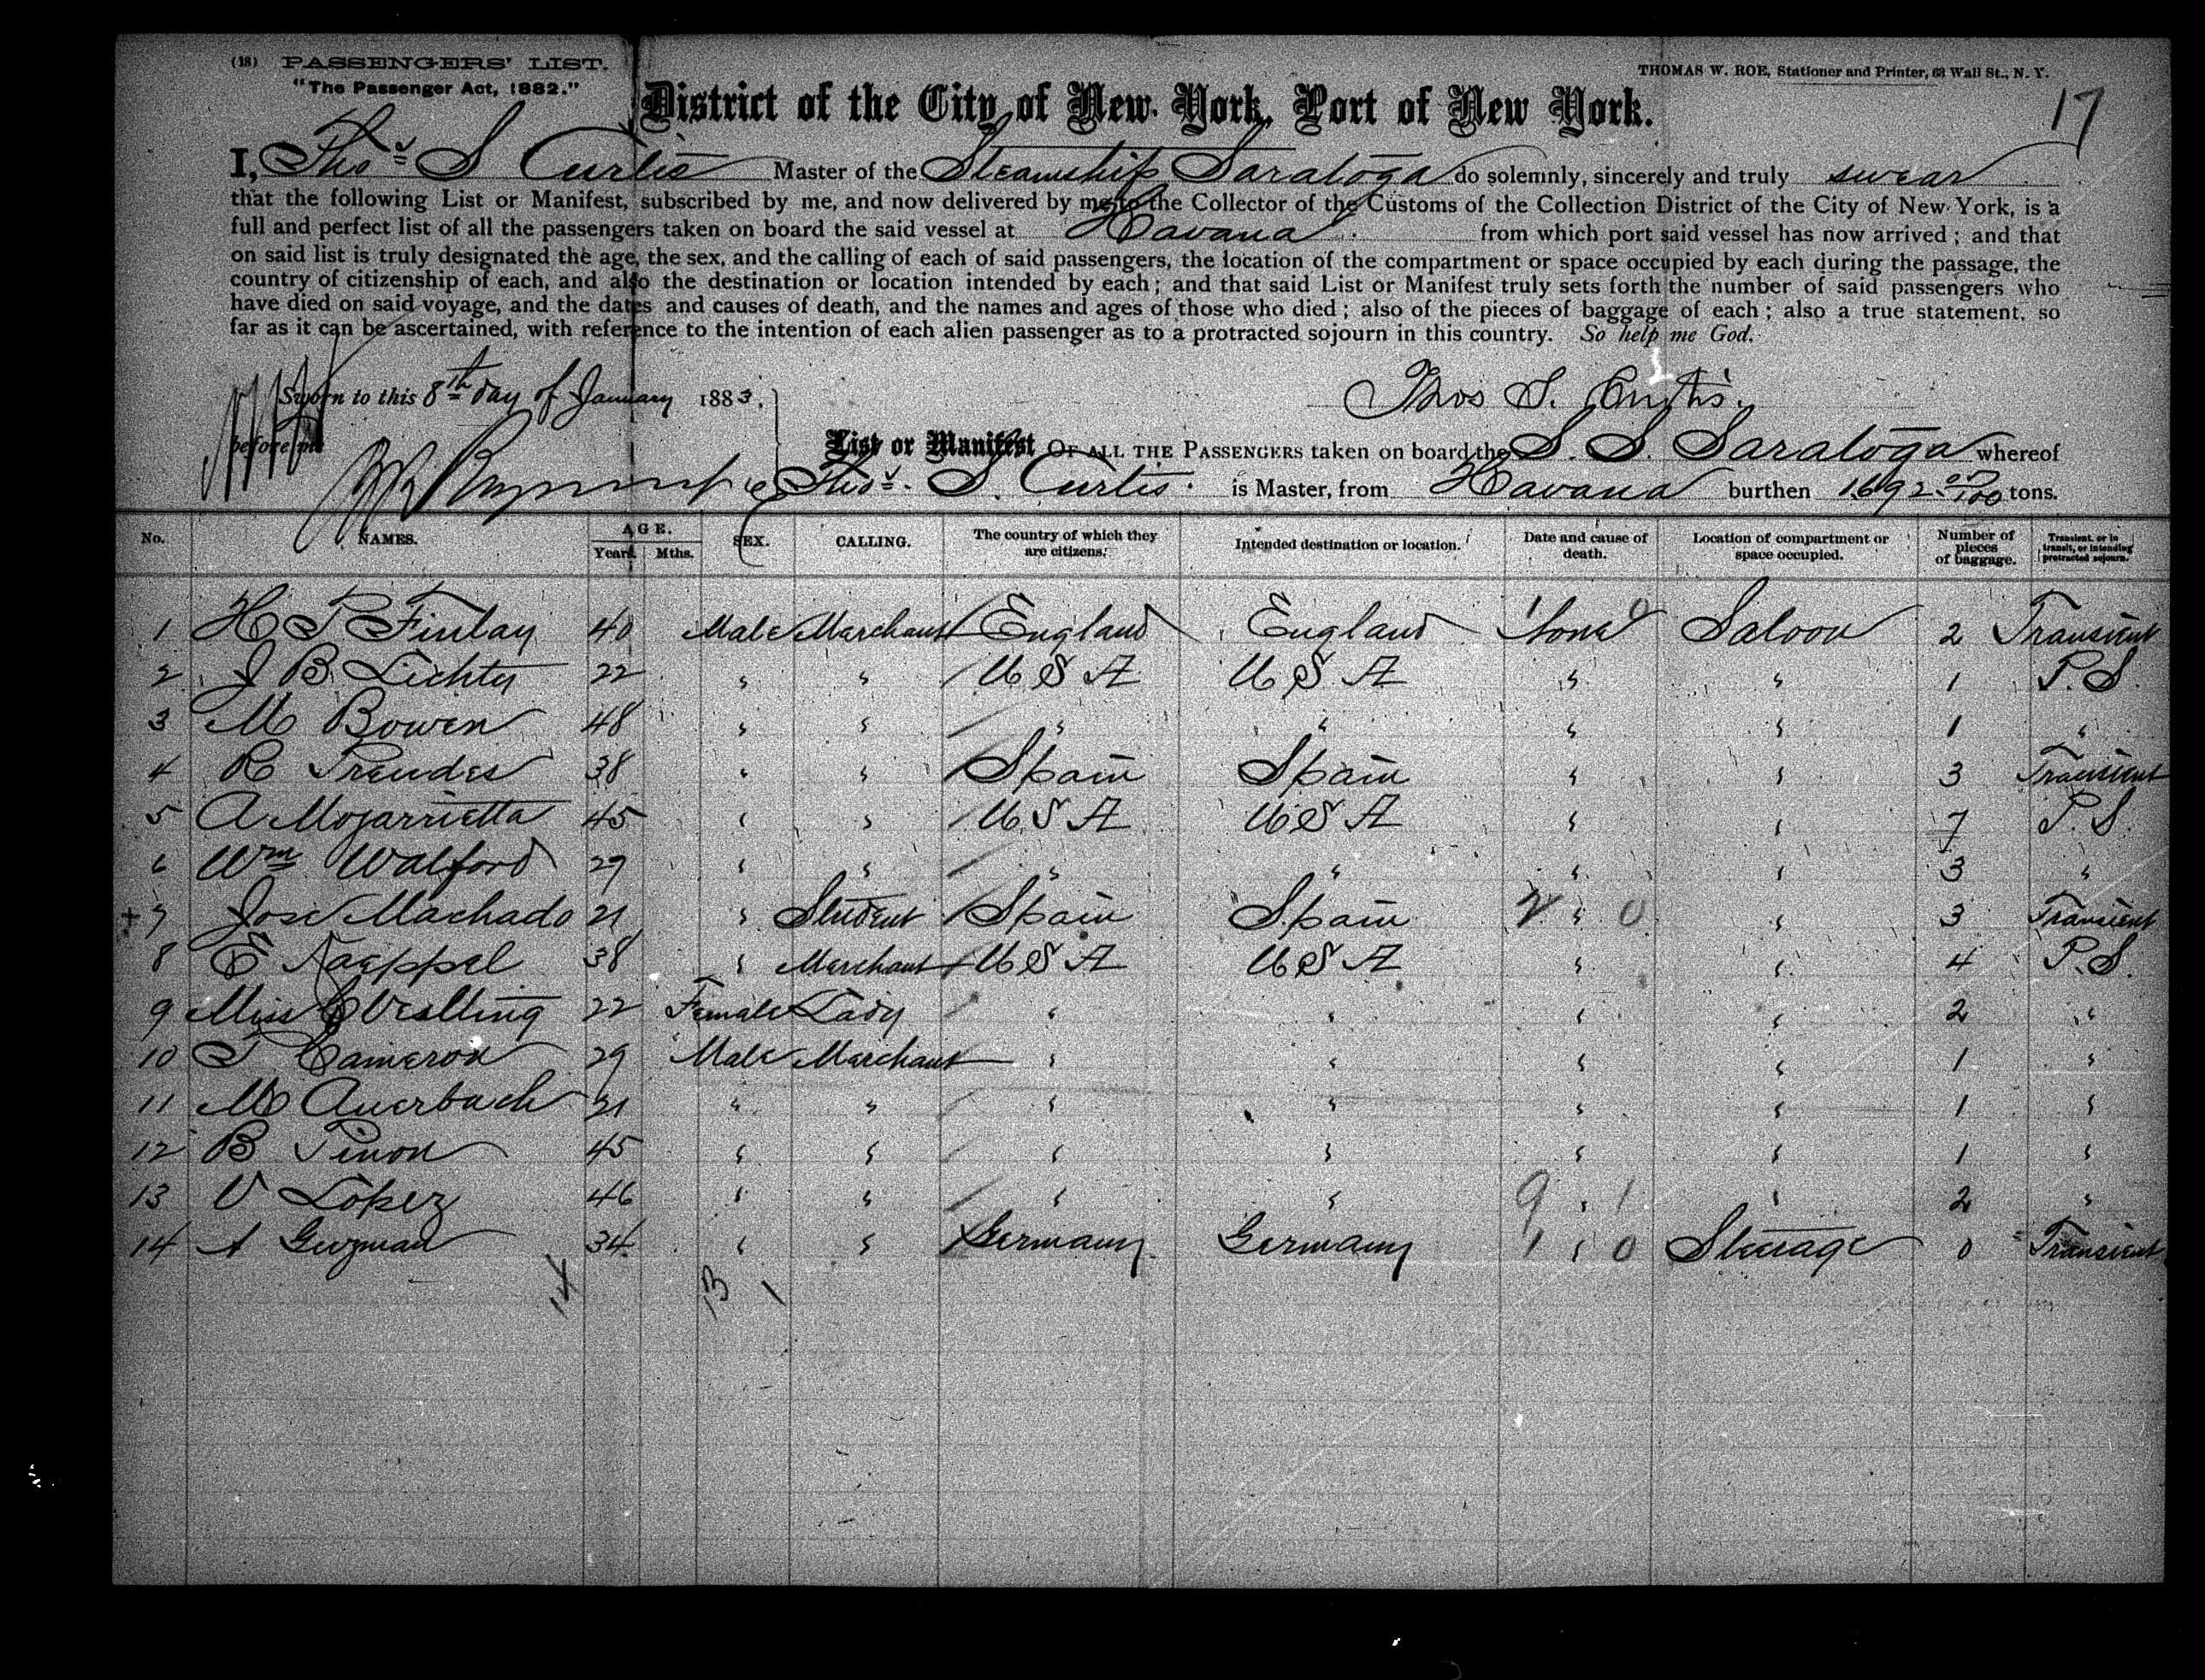 (18) PASSENGERS' LIST.
"The Passenger Act, 1882."
THOMAS W. ROE, Stationer and Printer, 63 Wall St., N. Y.
17
District of the City of New-York, Port of New York.
I, Thos S Curtis Master of the Steamship Saratoga do solemnly, sincerely and truly swear
that the following List or Manifest, subscribed by me, and now delivered by me to the Collector of the Customs of the Collection District of the City of New-York, is a
full and perfect list of all the passengers taken on board the said vessel at Havana from which port said vessel has now arrived; and that
on said list is truly designated the age, the sex, and the calling of each of said passengers, the location of the compartment or space occupied by each during the passage, the
country of citizenship of each, and also the destination or location intended by each; and that said List or Manifest truly sets forth the number of said passengers who
have died on said voyage, and the dates and causes of death, and the names and ages of those who died; also of the pieces of baggage of each; also a true statement, so
far as it can be ascertained, with reference to the intention of each alien passenger as to a protracted sojourn in this country. So help me God.
Sworn to this 8th day of January 1883.
before me
Thos S. Curtis.
List or Manifest OF ALL THE PASSENGERS taken on board the S. S. Saratoga whereof
Thos. S. Curtis. is Master, from Havana burthen 1692 /100 tons.
No. NAMES. AGE. Years Mths. SEX. CALLING. The country of which they are citizens. Intended destination or location. Date and cause of death. Location of compartment or space occupied. Number of pieces of baggage. Transient, or in transit, or intending protracted sojourn.
1 H T Finlay 40 Male Merchant England England None 0 Saloon 2 Transient
2 J B. Lichty 22 " " U S A U S A " " 1 P. S.
3 M Bowen 48 " " " " " " 1 "
4 R Prendes 38 " " Spain Spain " " 3 Transient
5 A Mojarrietta 45 " " U S A U S A " " 7 P. S.
6 Wm Walford 29 " " " " " " 3 "
+ 7 Jose Machado 21 " Student Spain Spain 2 " 0 " 3 Transient
8 E Kaeppel 38 " Merchant U S A U S A " " 4 P. S.
9 Miss C 22 Female Lady " " " " 2 "
10 Cameron 29 Male Merchant " " " " 1 "
11 M Auerbach 21 " " " " " " 1 "
12 B Pinon 45 " " " " " " 1 "
13 V Lopez 46 " " " " 9 " 1 " 2 "
14 A Guzman 34 " " Germany Germany 1 " 0 Steerage 0 Transient
14 13 1